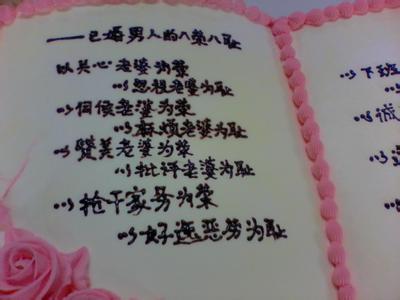 ——已婚男人的八荣八耻
以关心老婆为荣
以忽视老婆为耻
以伺侯老婆为荣
以麻烦老婆为耻
以赞美老婆为荣
以批评老婆为耻
以抢干家务为荣
以好逸恶劳为耻
以下班
以
以
以